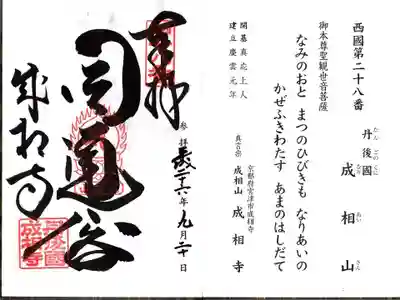 西國第二十八番
丹後國
たんごのくに
成相山
なりあいさん
御本尊聖観世音菩薩
なみのおと まつのひびきも なりあいの
かぜふきわたす あまのはしだて
開基真応上人
建立慶雲元年
京都府宮津市成相寺
真言宗
成相山 成相寺
奉拝
参拝
九月二十日
圓通閣
成相寺
成相寺